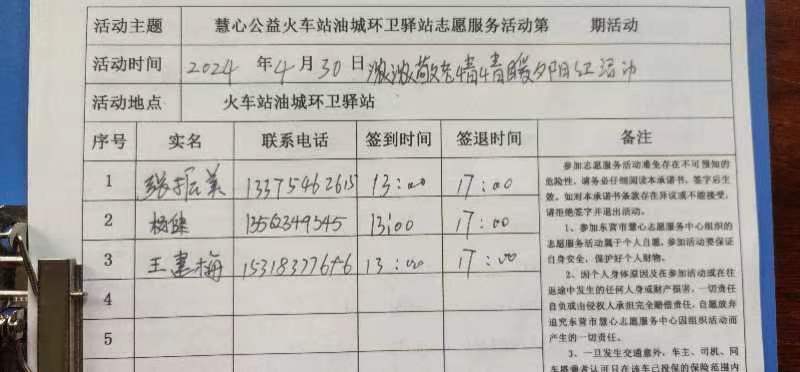 活动主题 慧心公益火车站油城环卫驿站志愿服务活动第 期活动
活动时间 2024 年 4 月 30 日 浓浓敬老情情暖夕阳红活动
活动地点 火车站油城环卫驿站
序号 实名 联系电话 签到时间 签退时间 备注
1 张振美 13375462615 13:00 17:00
2 杨继 13562349545 13:00 17:00
3 王惠梅 15318377676 13:00 17:00
4
5
参加志愿服务活动难免存在不可预知的
危险性,请务必仔细阅读本承诺书,签字后生
效。如对本承诺书条款存在异议或不能接受,
请拒绝签字并退出活动。
1、参加东营市慧心志愿服务中心组织的
志愿服务活动属于个人自愿,参加活动要保证
自身安全,保护好个人财物。
2、因个人身体原因及在参加活动或在往
返途中发生的任何人身或财产损害,一切责任
自负或由侵权人承担完全赔偿责任,自愿放弃
追究东营市慧心志愿服务中心因组织活动而
产生的一切责任。
3、一旦发生交通意外,车主、司机、同
车搭乘者认可只在该车已投保的保险范围内